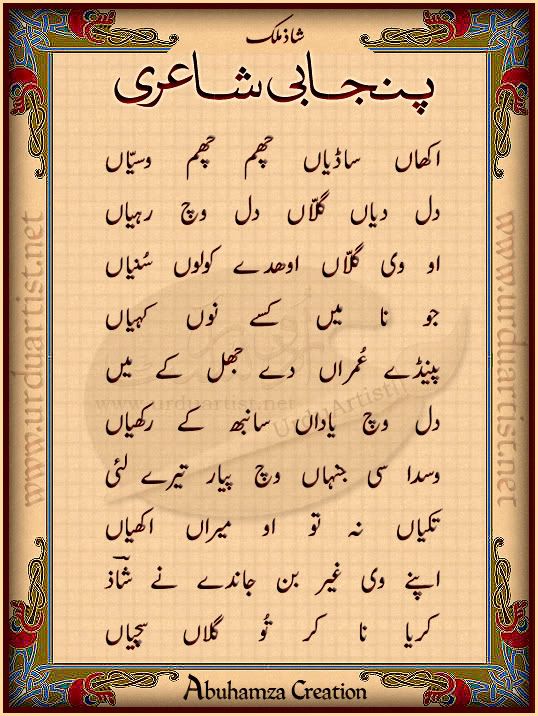 شاذ ملک
پنجابی شاعری
اکھاں ساڈیاں چھم چھم وسیّاں
دل دیاں گلّاں دل وچ رہیاں
او وی گلّاں اوھدے کولوں سُنیاں
جو نا میں کسے نوں کہیاں
پینڈے عُمراں دے جھل کے میں
دل وچ یاداں سانبھ کے رکھیاں
وسدا سی جنہاں وچ پیار تیرے لئی
تکیاں نہ تو او میراں اکھیاں
اپنے وی غیر بن جاندے نے شاذؔ
کریا نا کر تُو گلاں سچیاں
Abuhamza Creation
www.urduartist.net
www.urduartist.net
www.urduartist.net
UrduArtist